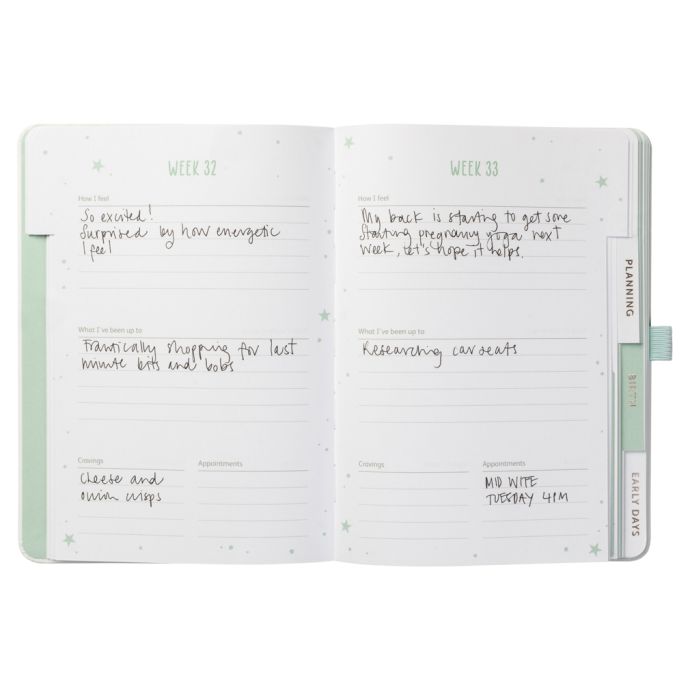 WEEK 32
How I feel
So excited!
Surprised by how energetic
I feel
What I've been up to
Frantically shopping for last
minute bits and bobs
Cravings
Cheese and
onion crisps
Appointments
WEEK 33
How I feel
My back is starting to get sore
Starting pregnancy yoga next
week, let's hope it helps.
What I've been up to
Researching car seats
Cravings
Appointments
MID WIFE
TUESDAY 4PM
PLANNING
BIRTH
EARLY DAYS